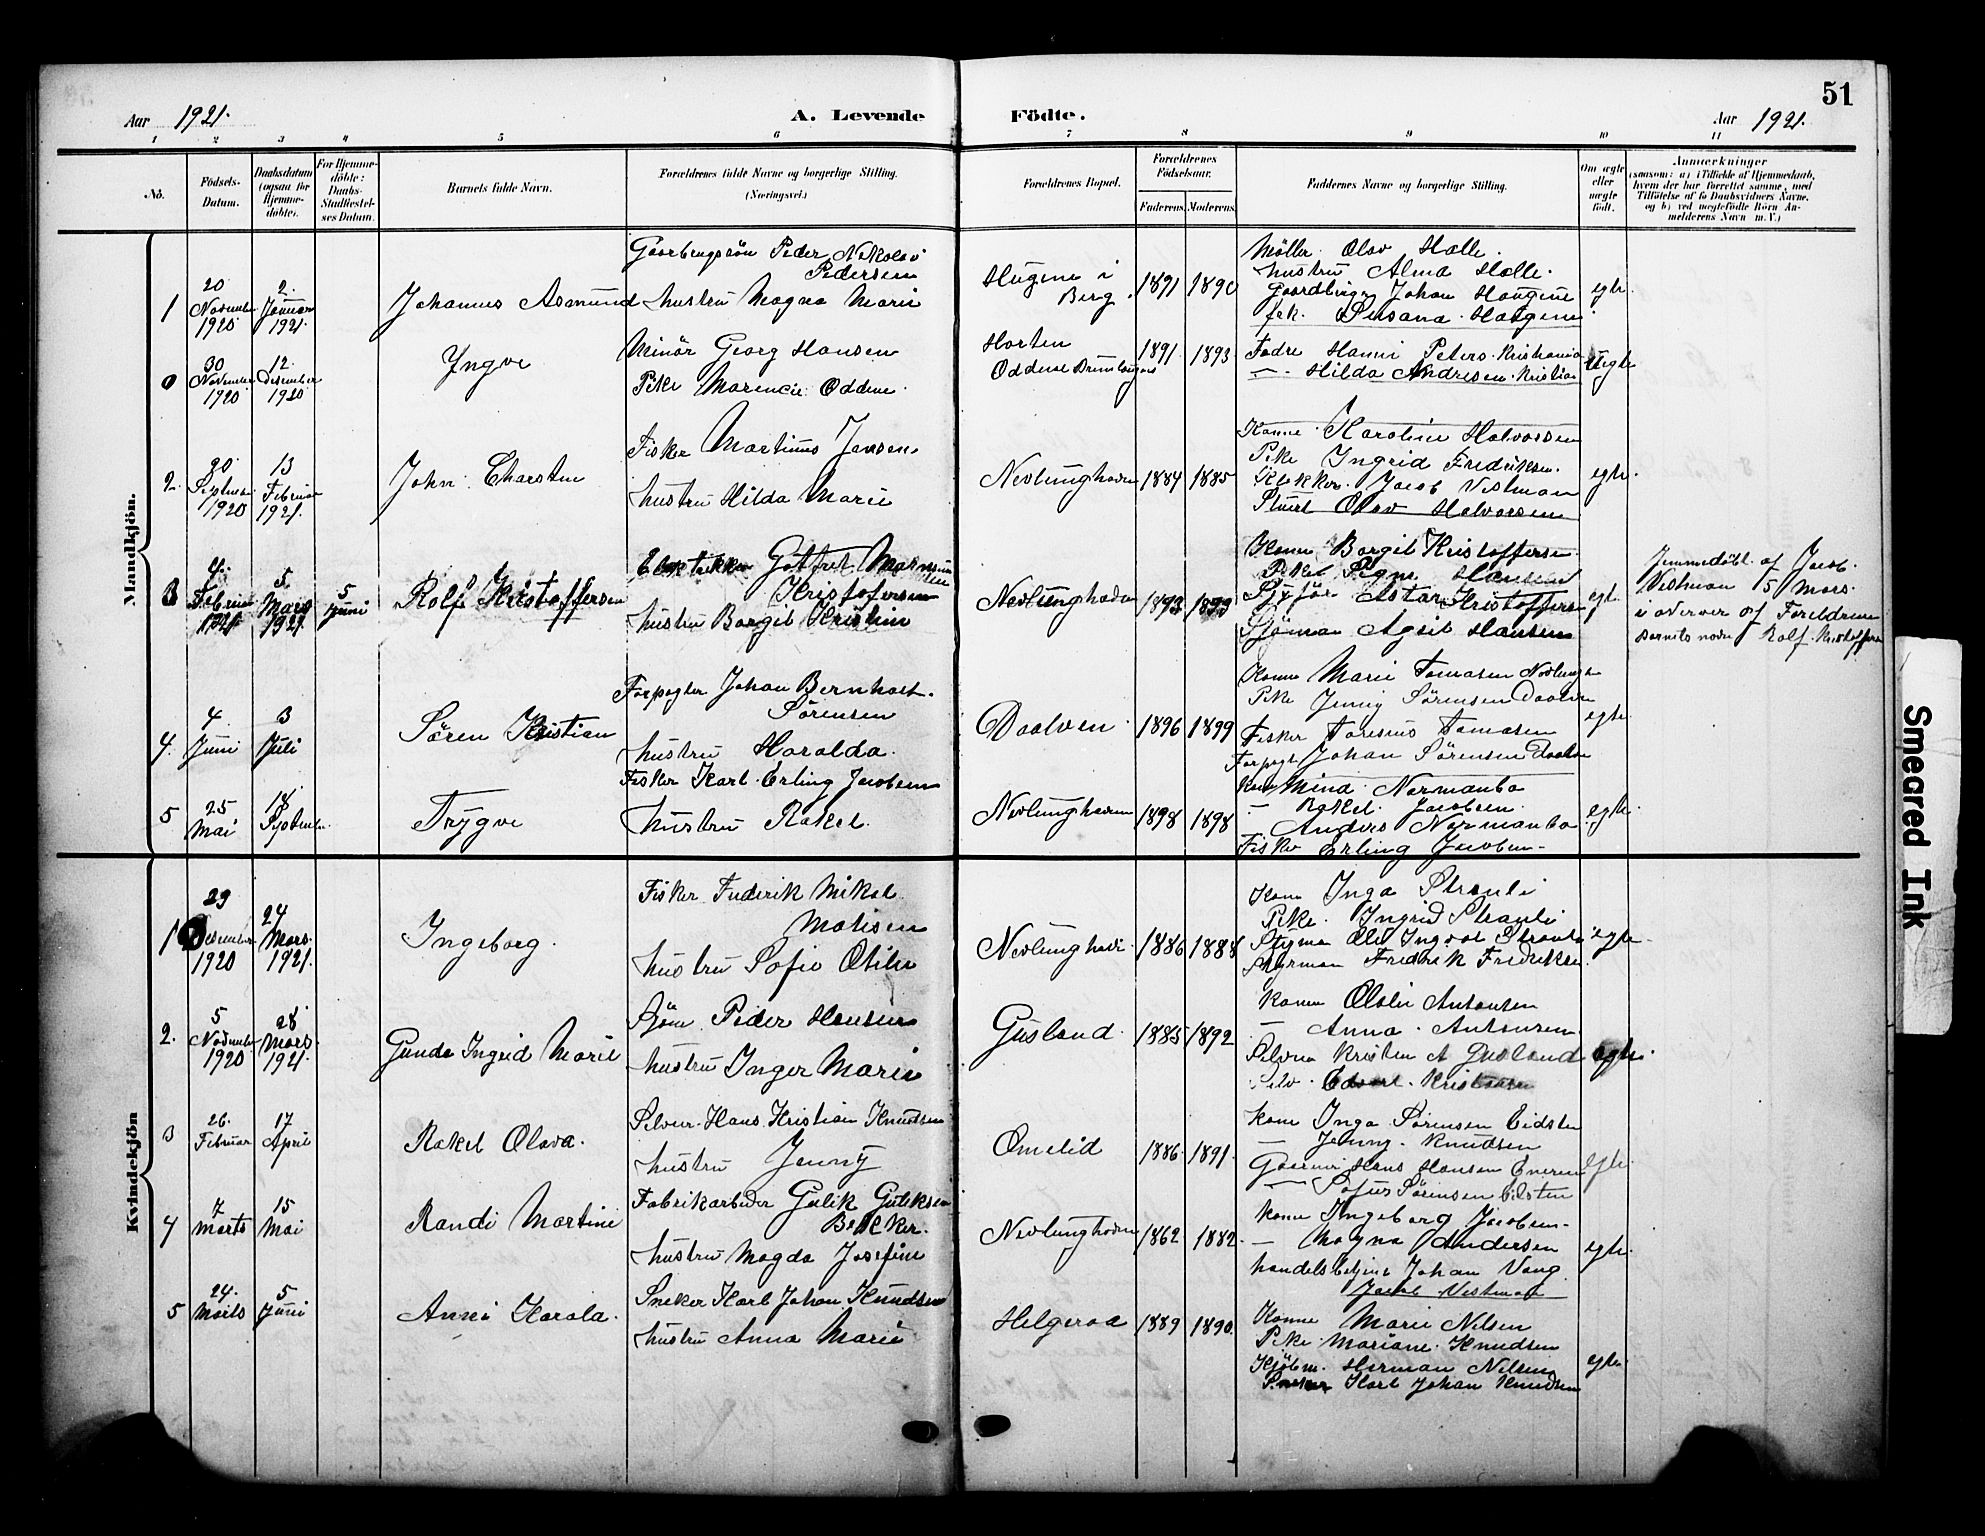 51
Aar 1921.
A. Levende
Födte.
Aar 1921.
1 2 3 4 5 6 7 8 9 10 11
No.
Födsels-
Datum.
Daabsdatum
(ogsaa for
Hjemme-
döbte).
For Hjemme-
döbte:
Daabs-
Stadfæstel-
ses Datum.
Barnets fulde Navn.
Forældrenes fulde Navne og borgerlige Stilling.
(Næringsvei.)
Forældrenes Bopæl.
Forældrenes
Födselsaar.
Faderens. Moderens.
Faddernes Navne og borgerlige Stilling.
Om ægte
eller
uægte
födt.
Anmærkninger
(saasom: a) i Tilfælde af Hjemmedaab,
hvem der har forrettet samme, med
Tilföielse af to Daabsvidners Navne,
og b) ved uægtefödte Börn An-
melderens Navn m. V.)
Mandkjön.
1
20
November
1920
2.
Januar
1921.
Johannes Asmund
Gaardbrugssön Peder Nikolai
Pedersen
hustru Magna Marie
Hugene i
Berg.
1891 1890
Möller Olav Halle.
hustru Alma Halle.
Gaardbruger Johan Haugene
frk. Susana Haugene
egte.
0
30
November
1920
12.
Desember
1920
Yngve
Minör Georg Hansen
Pike Marencie Oddene.
Horten
Oddene
1891. 1893
Fadre Hanni Peters. Kristiania
— Hilda Andresen. Kristian
Uegte
2.
20
1920
13
Februar
1921.
John Charsten
Fisker Martinus Jensen.
hustru Hilda Marie
Nevlunghavn
1884 1885
Kone Karoline Halvorsen
Pike Ingrid Fredriksen.
Klokker Jacob Vestman
Stuert Olav Halvorsen
egte.
3
4.
Februar
1921
5
Mars
1921
5
Juni
Rolf Kristoffersen
Elektriker Gotfret Marnsius
Kristofersen
hustru Borgit Kristine
Nevlunghavn
1893 1899
Kone Borgit Kristoffersen
Pike Signe Hansen
Astar Kristoffersen
Sjöman Agsil Hansen
egte
Jemmedöbt af Jacob
Vestman 5 Mars.
i overver of Foreldrene
Barnets navn Rolf Kristoffersen
4.
4
Juni
3
Juli
Sören Kristian
Forpagter Johan Bernhart.
Sörensen
hustru Haralda.
Daalven.
1896 1899
Kone Marie Tomasen Nevlungh
Pike Jenny Sörensen Daalven
Fisker Toresius Tomasen
Forpagt Johan Sörensen Daalven
egte.
5
25
Mai
18
September
Trygve
Fisker Karl Erling Jacobsen
hustru Rakel.
Nevlunghavn
1898 1898
Kone Mina Normanbo
— Rakel. Jacobsen.
— Anders Normanbo
Fisker Erling Jacobsen
egte
Kvindekjön
1
29
Desember
1920
24
Mars.
1921.
Ingeborg.
Fisker Frederik Mikal
Matisen
hustru Sofie Otilie
Nevlunghavn.
1886 1888
Kone Inga Stranli
Pike. Ingrid Stranli
Styrman Fredrik Fredriksen
egte.
2.
5
November
1920
28
Mars.
1921.
Gunda Ingrid Marie
Sjöm. Peder Hansen
hustru Inger Marie
Gusland.
1885 1892
Kone Olslie Antonsen
— Anna. Antonsen.
Kristen A Gusland
Selv. Edvart. Kristiansen
egte.
3
26.
Februar
17
April
Rakel Olava.
Hans Kristian Knudsen
hustru Jenny
Omelid
1886. 1891.
Kone Inga Sörensen Eidsten
— Jenny. Knudsen
Hans Hansen
— Sofus Sörensen Eidsten
egte.
4
7
Marts
15
Mai
Randi Martine
Fabrikarbeider Gulik Guliksen
Bekker.
hustru Magda Josefine
Nevlunghavn
1862 1882.
Kone Ingeborg Jacobsen
— Magna Andersen
handelsbetjent Johan Vang
Jacob Vestman
egte.
5
24.
Marts
5
Juni
Anni Harala.
Sneker Karl Johan Knudsen
hustru Anna Marie
Helgeroa
1889 1890.
Kone Marie Nilsen
Pike. Mariane. Knudsen
Kjöbm. Herman Nilsen
Sneker Karl Johan Knudsen
egte.
Smecred Ink